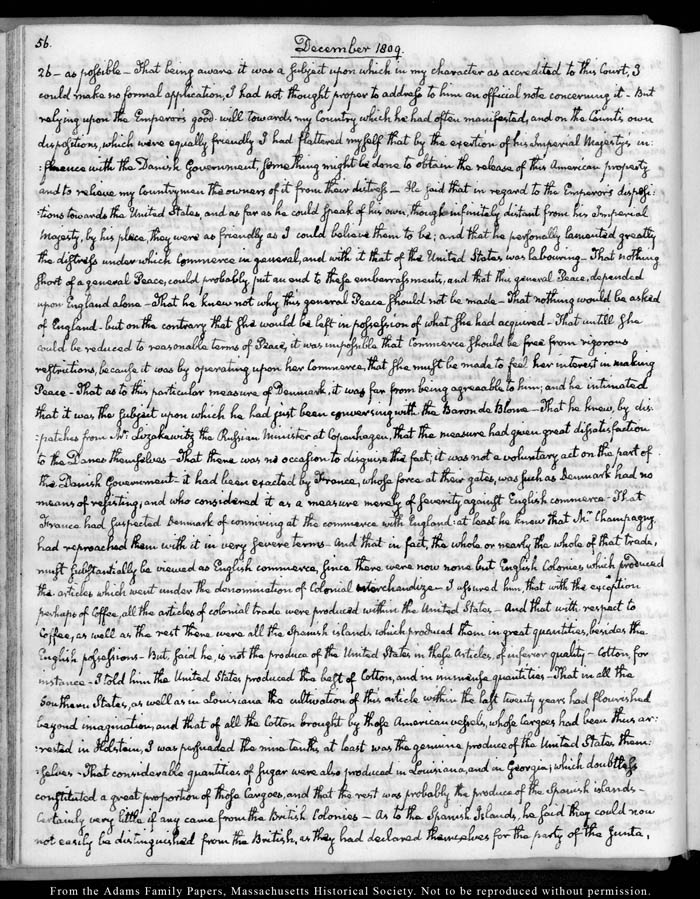 56.
December 1809.
26 — as possible — That being aware it was a subject upon which in my character as accredited to this Court, I
could make no formal application, I had not thought proper to address to him an official note concerning it — But
relying upon the Emperor's good-will towards my Country which he had often manifested, and on the Count's own
dispositions, which were equally friendly I had flattered myself that by the exertion of his Imperial Majesty's in:
:fluence with the Danish Government, something might be done to obtain the release of this American property
and to relieve my Countrymen the owners of it from their distress — He said that in regard to the Emperor's dispos:
:itions towards the United States, and as far as he could speak of his own, though infinitely distant from his Imperial
Majesty, by his place, they were as friendly as I could believe them to be; and that he personally lamented greatly
the distress under which Commerce in general, and with it that of the United States was labouring — That nothing
short of a general Peace, could probably put an end to these embarrassments, and that this general Peace, depended
upon England alone — That he knew not why this general Peace should not be made — That nothing would be asked
of England — but on the contrary that she would be left in possession of what she had acquired — That untill she
could be reduced to reasonable terms of Peace, it was impossible that Commerce should be free from rigorous
restrictions, because it was by operating upon her Commerce, that she must be made to feel her interest in making
Peace — That as to this particular measure of Denmark, it was far from being agreeable to him; and he intimated
that it was the subject upon which he had just been conversing with the Baron de Blome — That he knew, by dis:
:patches from Mr. Lizakewitz the Russian Minister at Copenhagen, that the measure had given great dissatisfaction
to the Danes themselves — That there was no occasion to disguise the fact; it was not a voluntary act on the part of
the Danish Government — it had been exacted by France, whose force at their gates, was such as Denmark had no
means of resisting, and who considered it as a measure merely of severity against English commerce — That
France had suspected Denmark of conniving at the commerce with England: at least he knew that Mr. Champagny
had reproached them with it in very severe terms — And that in fact, the whole or nearly the whole of that trade,
must substantially be viewed as English commerce, since there were now none but English Colonies which produced
the articles which went under the denomination of Colonial merchandize — I assured him, that with the exception
perhaps of Coffee, all the articles of colonial trade were produced within the United States — And that with respect to
Coffee, as well as the rest there were all the Spanish islands which produced them in great quantities, besides the
English possessions — But, said he, is not the produce of the United States in these Articles, of inferior quality — Cotton, for
instance — I told him the United States produced the best of Cotton, and in immense quantities — That in all the
Southern States, as well as in Louisiana the cultivation of this article within the last twenty years had flourished
beyond imagination, and that of all the Cotton brought by those American vessels, whose Cargoes had been thus ar:
:rested in Holstein, I was persuaded the nine tenths, at least was the genuine produce of the United States them:
:selves — That considerable quantities of Sugar were also produced in Louisiana, and in Georgia; which doubtless
constituted a great proportion of those Cargoes, and that the rest was probably the produce of the Spanish islands —
Certainly very little if any came from the British Colonies — As to the Spanish Islands, he said they could now
not easily be distinguished from the British, as they had declared themselves for the party of the Junta,
From the Adams Family Papers, Massachusetts Historical Society. Not to be reproduced without permission.